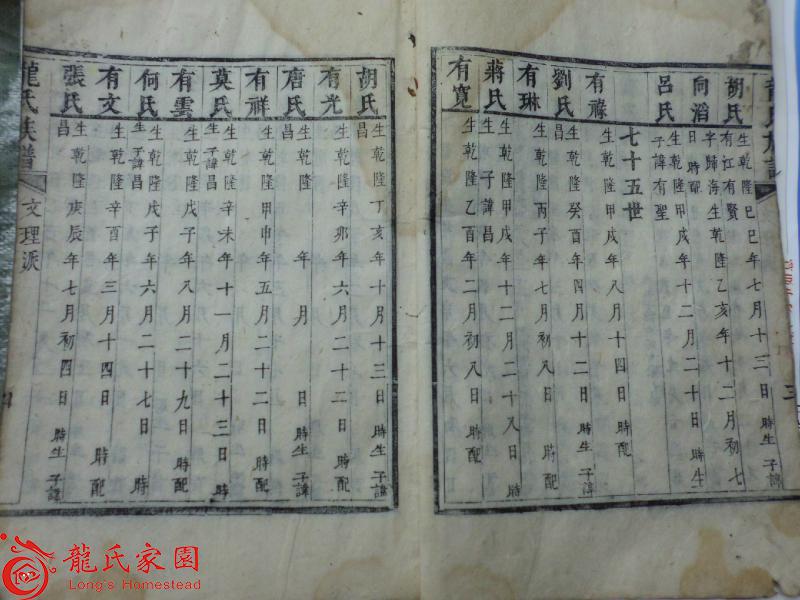 龍氏族譜
三
胡氏 生乾隆己巳年七月十三日 時生 子諱
有江有賢
向滔 字歸海生乾隆乙亥年十二月初七
日 時配
呂氏 生乾隆甲戌年十二月二十日 時生
子諱有聖
七十五世
有祿 生乾隆甲戌年八月十四日 時配
劉氏 生乾隆癸酉年四月十二日 時生 子諱
昌
有琳 生乾隆丙子年八月初八日 時配
蔣氏 生乾隆甲戌年十一月二十八日 時
生 子諱昌
有寬 生乾隆乙酉年二月初八日 時配
胡氏 生乾隆丁亥年十月十三日 時生 子諱
昌
有光 生乾隆辛卯年六月二十二日 時配
唐氏 生乾隆 年 月 日 時生 子諱
昌
有祥 生乾隆甲申年五月二十二日 時配
莫氏 生乾隆辛未年十一月二十三日 時
生 子諱昌
有雲 生乾隆戊子年八月二十九日 時配
何氏 生乾隆戊子年六月二十七日 時
生 子諱昌
有文 生乾隆辛酉年三月十四日 時配
張氏 生乾隆庚辰年七月初四日 時生 子諱
昌
龍氏族譜
文理派
龍氏家園
Long's Homestead